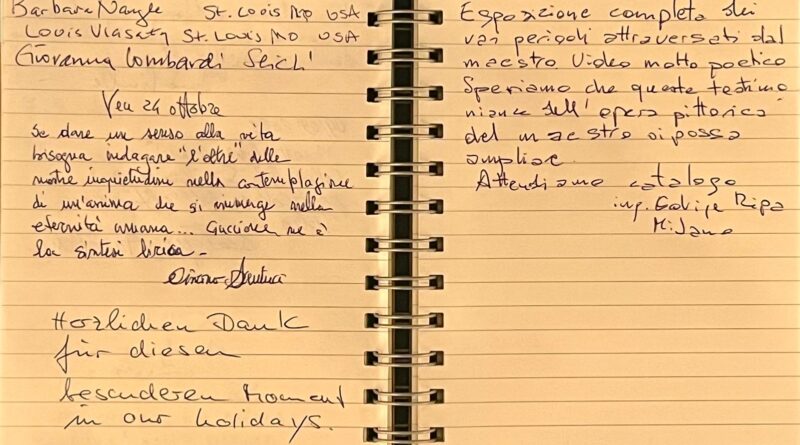 Barbara Nangle St. Louis MO USA
Louis Vlasaty St. Louis MO USA
Giovanna Lombardi
Ven 24 ottobre
Se dare un senso alla vita
bisogna indagare "l'oltre" delle
nostre inquietudini nella contemplazione
di un'anima che si immerge nella
eternità umana... Guccione ne è
la sintesi lirica.
Herzlichen Dank
für diesen
besonderen Moment
in our holidays.
Esposizione completa dei
vari periodi attraversati dal
maestro. Video molto poetico
Speriamo che queste testimo
nianze dell'opera pittorica
del maestro si possa
ampliare.
Attendiamo catalogo
ing. Ripa
Milano